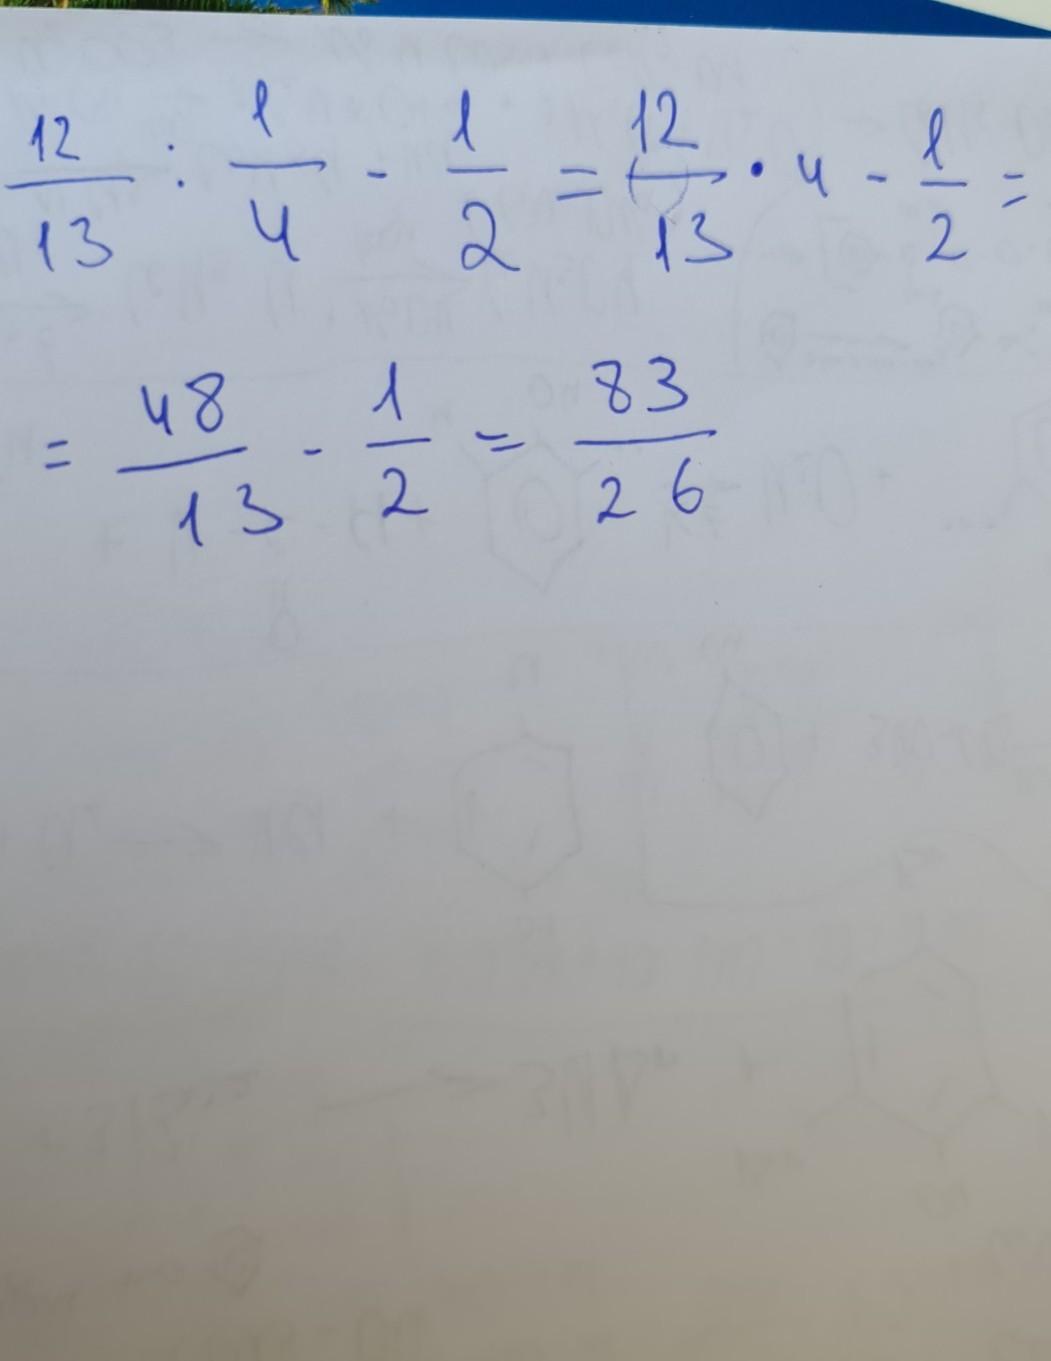 12/13 : 1/4 - 1/2 = 12/13 · 4 - 1/2 =
= 48/13 - 1/2 = 83/26